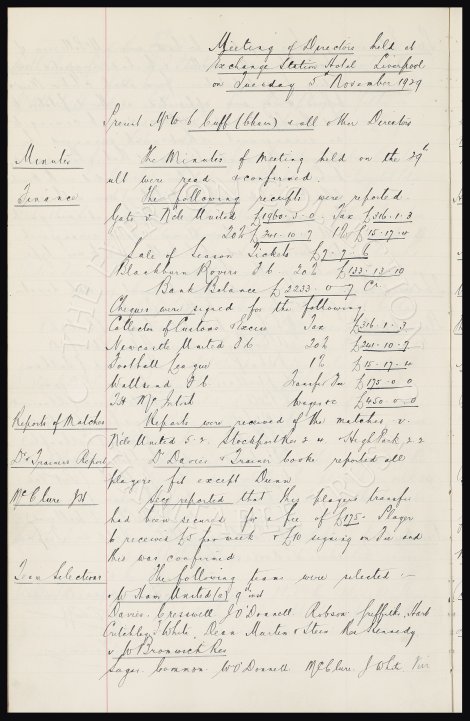 Meeting of Directors held at
Exchange Station Hotel Liverpool
on Tuesday 5th November 1929
Present Mr W C Cuff (Chair) & all other Directors
Minutes
The Minutes of Meeting held on the 29th
ult were read & confirmed.
Finance
The following receipts were reported.
Gate v N'cle United £1960-3-0. Tax £316-1-3
20% £241-10-7 1% £15-17-4
Sale of Season Tickets £7-7-6
Blackburn Rovers F C 20% £133-13-10
Bank Balance £2233-0-7 Cr
Cheques were signed for the following
Collector of Customs & Excise Tax £316-1-3
Newcastle United F C 20% £241-10-7
Football League 1% £15-17-4
Wallsend F C Transfer Fee £175-0-0
T H McIntosh Wages &c £450-0-0
Reports of Matches
Reports were received of the matches v.
N'cle United 5-2. Stockport Res 2-4 High Park 2-2
Drs & Trainers Report
Dr Davies & Trainers books reported all
players fit except Dunn
McClure
Secy reported that this players transfer
had been secured for a fee of £175. Player
to receive £5 per week & £10 signing on Fee and
this was confirmed.
Team Selections
The following teams were selected :-
v W Ham United (a) 9th inst
Davies. Cresswell J O'Donnell Robson Griffiths Hart
Critchley T White, Dean Martin & Stein Res Kennedy
v W Bromwich Res
Sagar. Common W O'Donnell McClure. J White